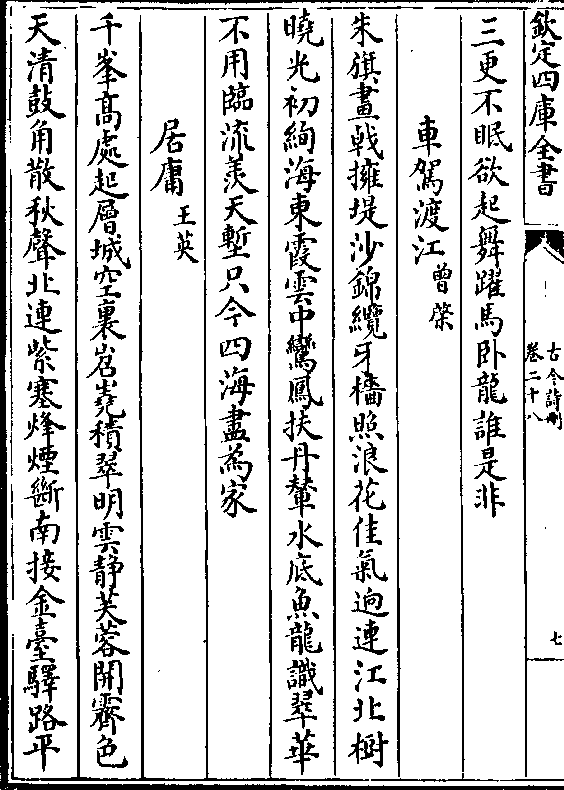 欽定四庫全書
古今詩刪
卷二十八
七
三更不眠欲起舞躍馬卧龍誰是非
車駕渡江 曾棨
朱旗畫戟擁堤沙錦纜牙檣照浪花佳氣逈連江北樹
曉光初絢海東霞雲中鸞鳳扶丹輦水底魚龍識翠華
不用臨流羨天塹只今四海盡為家
居庸 王英
千峯髙處起層城空裏岧嶤積翠明雲靜芙蓉開霽色
天清鼓角散秋聲北連紫塞烽煙斷南接金臺驛路平